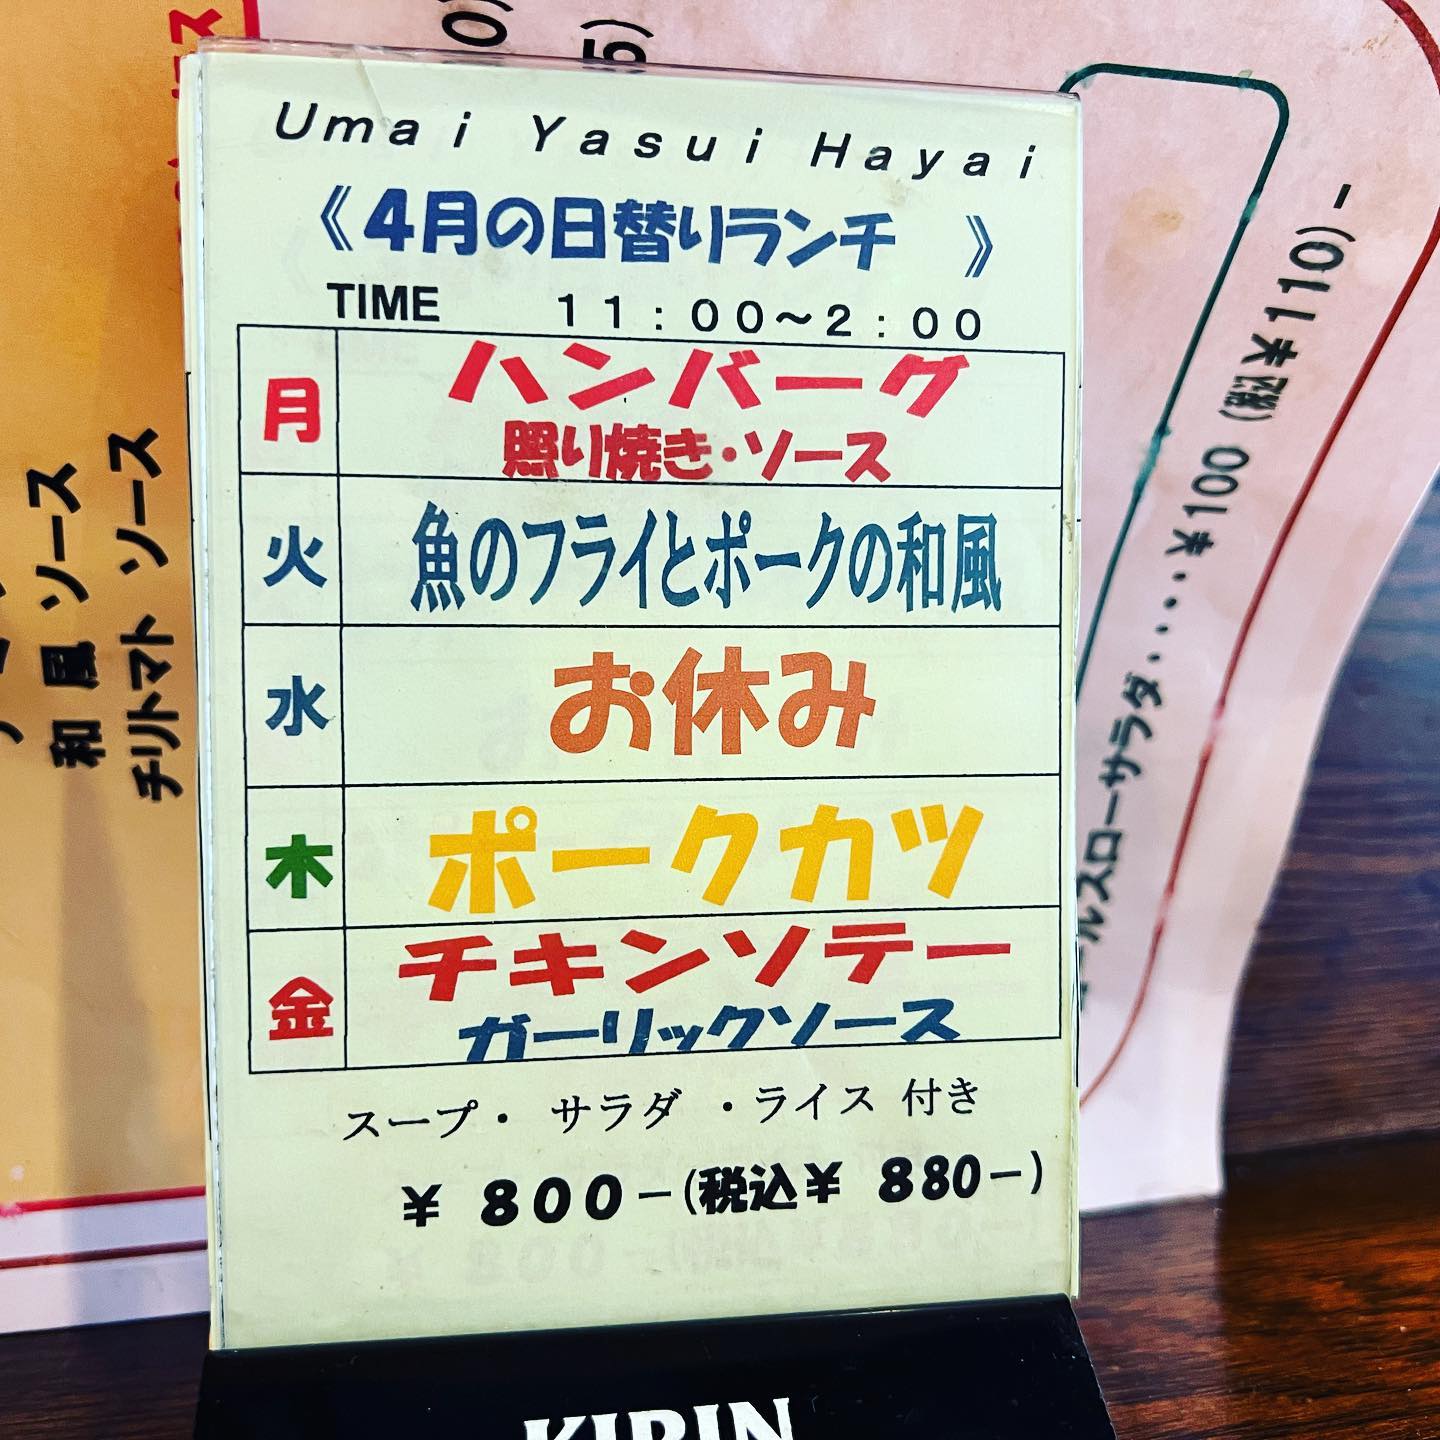 Umai Yasui Hayai
《4月の日替りランチ 》
TIME 11:00～2:00
月 ハンバーグ
照り焼き・ソース
火 魚のフライとポークの和風
水 お休み
木 ポークカツ
金 チキンソテー
ガーリックソース
スープ・ サラダ ・ライス 付き
¥ 800-(税込¥ 880-)
KIRIN
和風 ソース
チリトマト ソース
ールスローサラダ・・・・・¥100 (税込¥110)-